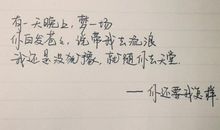 有一天晚上，梦一场
你白发苍苍，说带我去流浪
我还是没犹豫，就随你去天堂
——你还要我怎样